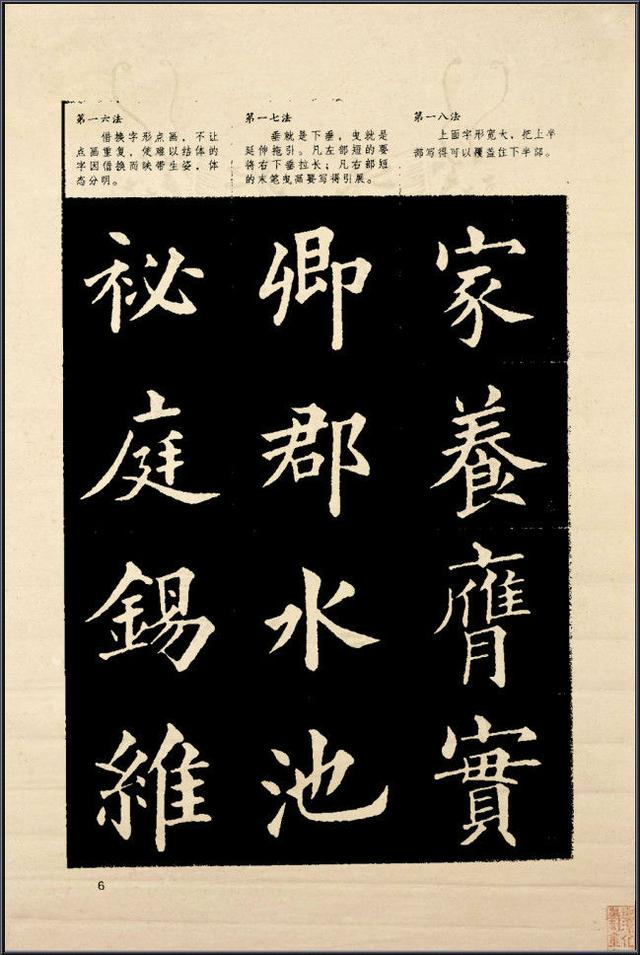 第一六法
借换字形点画，不让
点画重复，使难以结体的
字因借换而映带生姿，体
态分明。
第一七法
垂就是下垂，曳就是
延伸拖引。凡左部短的要
将右下垂拉长；凡右部短
的末笔曳画要写得引展。
第一八法
上面字形宽大，把上半
部写得可以覆盖住下半部。
家养膺實
卿郡水池
祕庭錫維
6